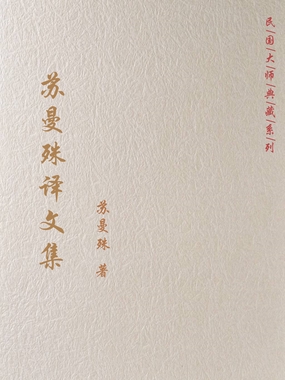 民国大师典藏系列
苏曼殊译文集
苏曼殊 著